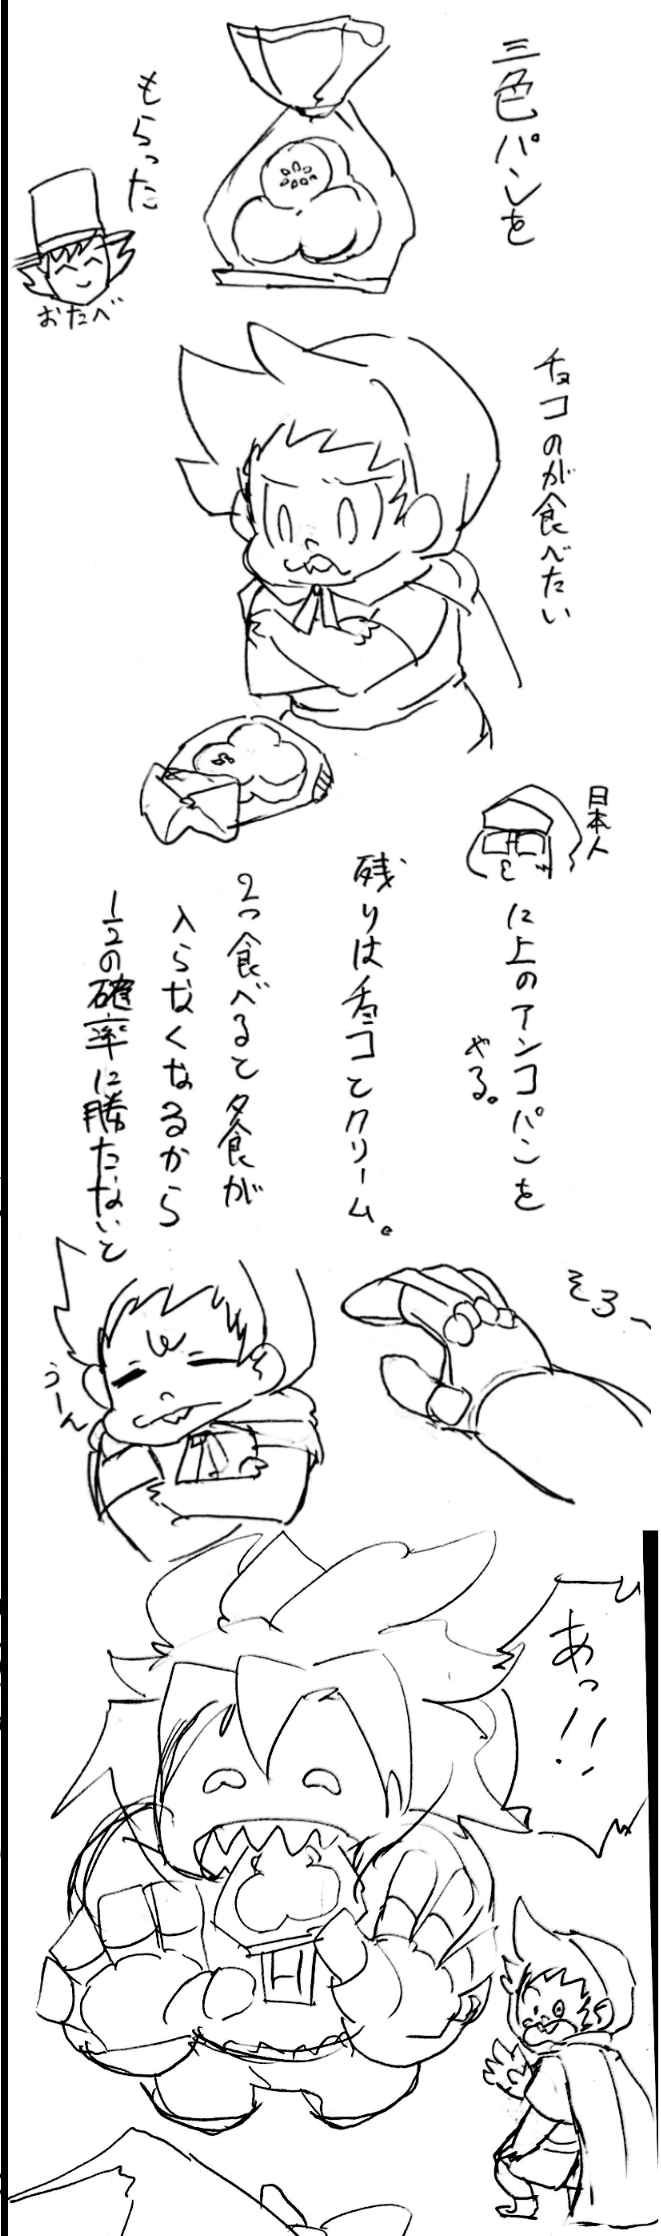 三色パンを
もらった
おたべ
チョコのが食べたい
日本人
に上のアンコパンを
やる。
残りはチョコとクリーム。
2つ食べると夕食が
入らなくなるから
1/2の確率に勝たないと
そろ〜
うーん
あっ!!